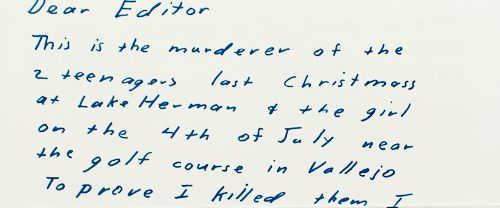 Dear Editor
This is the murderer of the
2 teenagers last Christmass
at Lake Herman & the girl
on the 4th of July near
the golf course in Vallejo
To prove I killed them I